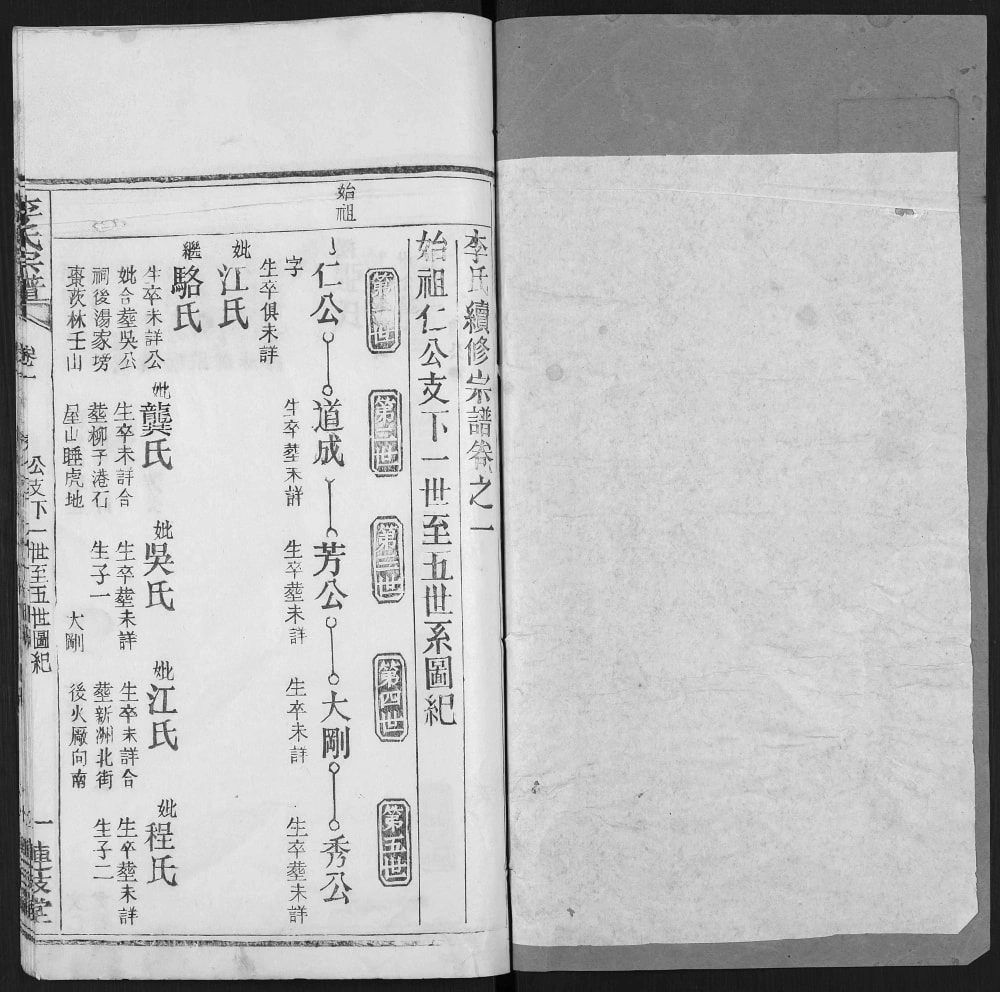 李氏續修宗譜卷之一
始祖仁公支下一世至五世系圖紀
第一世
第二世
第三世
第四世
第五世
始祖
仁公
道成
芳公
大剛
秀公
字
生卒俱未詳
生卒塟未詳
生卒塟未詳
生卒未詳
生卒塟未詳
妣江氏
繼駱氏
妣龔氏
妣吳氏
妣江氏
妣程氏
生卒未詳公
妣合塟吳公
祠後湯家塝
棗茨林壬山
生卒未詳合
塟柳子港石
星山睡虎地
生卒塟未詳
生子一
大剛
生卒未詳合
塟新洲北街
後火厰向南
生卒塟未詳
生子二
李氏宗譜
卷一
公支下一世至五世圖紀
一
連枝堂